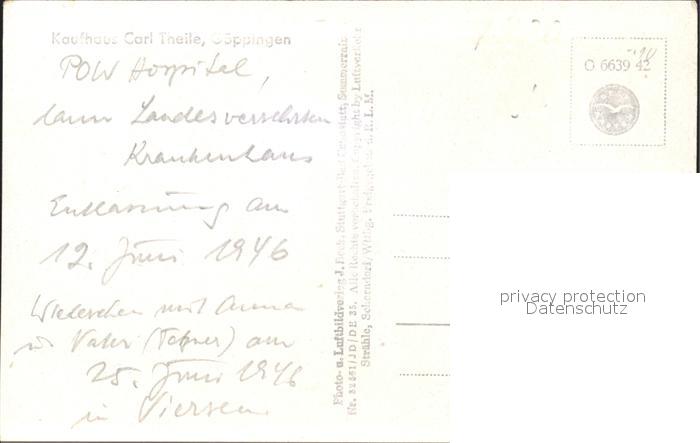 Kaufhaus Carl Theile, Göppingen
POW Hospital,
dann Landesversehrten
Krankenhaus
Entlassung am
12. Juni 1946
Wiedersehen mit Anna
u. Vater (        ) am
25. Juni 1946
in Viersen
Photo- u. Luftbildverlag J. Beck, Stuttgart-Bad Cannstatt, Sommerrain
Nr. 32561/JD/DE 35. Alle Rechte vorbehalten. Copyright by Luftverkehr
Strähle, Schorndorf/Wttbg. Freigegeben d. R.L.M.
O 6639 42
privacy protection
Datenschutz